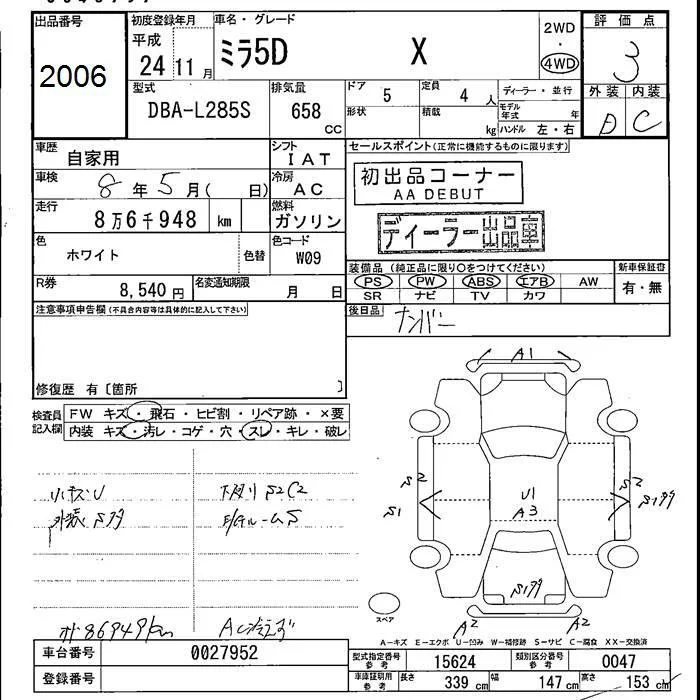 出品番号
2006
初度登録年月
平成
24 11 月
車名・グレード
ミラ5D X
2WD
・
4WD
評価点
3
外装 内装
D C
型式
DBA-L285S
排気量
658
cc
ドア 5
形状
定員 4 人
積載 kg
ディーラー・並行
モデル年式 年
ハンドル 左・右
車歴 自家用
シフト IAT
車検 8 年 5 月( 日)
冷房 AC
走行 8万6千948 km
燃料 ガソリン
色 ホワイト 色替
色コード W09
R券 8,540 円
名変通知期限 月 日
セールスポイント(正常に機能するものに限ります)
初出品コーナー
AA DEBUT
ディーラー出品車
装備品 (純正品に限り○をつけてください)
PS PW ABS エアB AW
SR ナビ TV カワ
新車保証書
有・無
後日品 ナンバー
注意事項申告欄(不具合内容等は具体的に記入して下さい)
修復歴 有〔箇所 〕
検査員記入欄
FW キズ・飛石・ヒビ割・リペア跡・×要
内装 キズ・汚レ・コゲ・穴・スレ・キレ・破レ
小キズU
下廻りS2C2
S
86949km
AC冷えず
A1
S2
S1
U1
A3
S2
A2
A2
スペア
A―キズ E―エクボ U―凹み W―補修跡 S―サビ C―腐食 XX―交換済
車台番号 0027952
登録番号
型式指定番号 参考 15624
類別区分番号 参考 0047
車庫証明用 参考 長さ 339 cm 幅 147 cm 高さ 153 cm